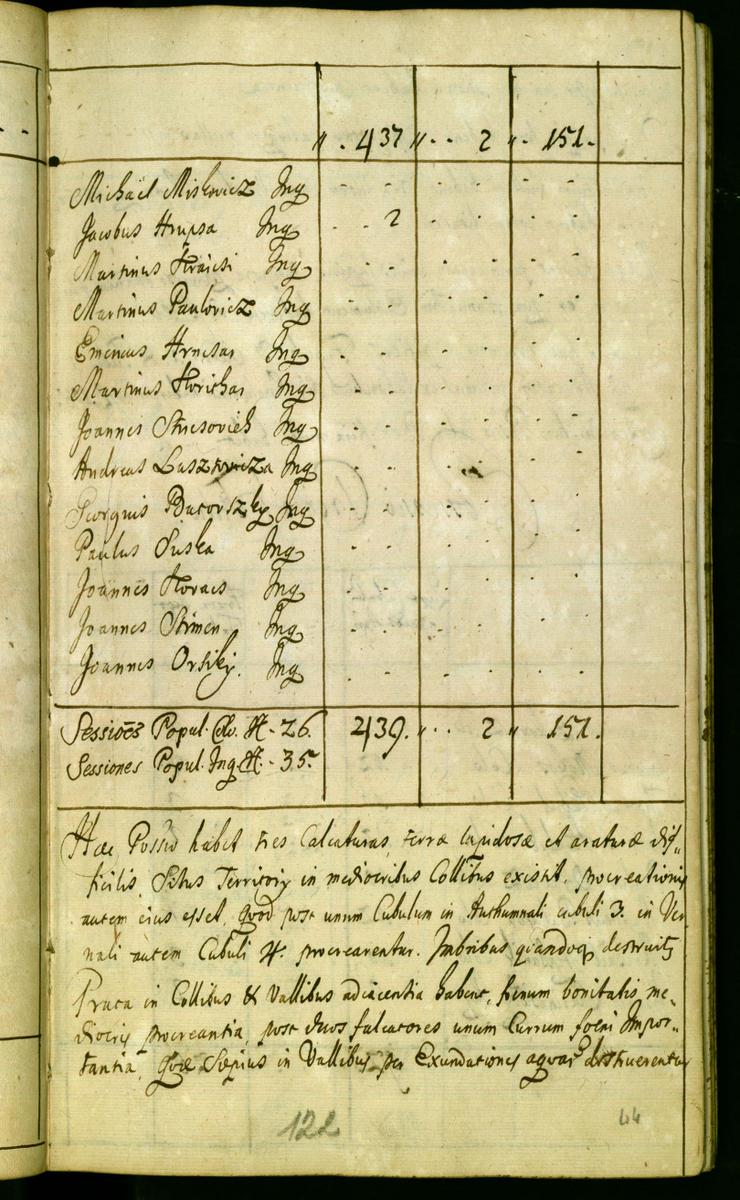 „ . 437 „ . . 2 „ . 151.
Michaël Miskovicz Ing
Jacobus Hrupsa Ing . . 2
Martinus Kraicsi Ing
Martinus Paulovicz Ing
Emericus Hrncsar Ing
Martinus Horithar Ing
Joannes Stresovich Ing
Andreas Ing
Georgius Bucovszky Ing
Paulus Suska Ing
Joannes Kovacs Ing
Joannes Strmen Ing
Joannes Orsiky. Ing
Sessiões Popul. Co. H - 26. 439. „ . . 2 „ 151.
Sessiones Popul. Ing H. - 35.
Hæc Possio habet tres Calcaturas, terræ lapidosæ et araturæ dif„
ficilis. Situs Territorÿ in mediocribus Collibus existit, procreationis
autem eius esset, quod post unum Cubulum in Authumnali cubuli 3. in Ver
nali autem Cubuli 4. procrearentur. Imbribus quandoq destruitᶻ
Prata in Collibus & Vallibus adiacentia habent, fænum bonitatis me„
diocris procreantia, post duos falcatores unum Currum foeni Impor„
tantia, quæ Sæpius in Vallibus per Exundationes aquar destruerentur
122
44